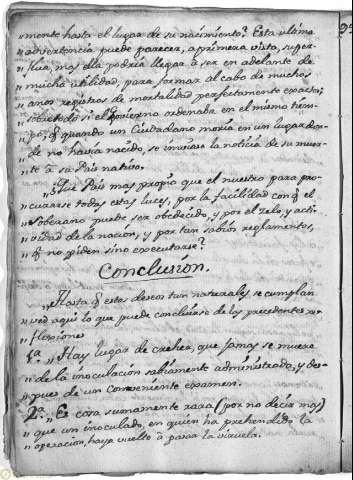 "mento hasta el lugar de su nacimiento? Esta ultima
"advertencia puede parecer, a primera vista, super-
"flua, mas ella podria llegar a ser en adelante de
"mucha utilidad, para formar al cabo de muchos
"anos registros de mortalidad perfectamente exactos;
"sobretodo si el govierno ordenaba en el mismo tiem-
"po, q̃ quando un Ciudadano moria en un lugar don-
"de no havia nacido, se inviase la noticia de su muer-
"te a su Pais nativo.
"Que Pais mas propio que el nuestro para pro-
"curarse todas estas luces, por la facilidad con q̃ el
"soberano puede ser obedecido, y por el zelo, y acti-
"vidad de la nacion, y por tan sabios reglamentos,
"q̃ no piden sino executarse?
Conclusión.
"Hasta q̃ estos deseos tan naturales se cumplan
"ved aqui lo que puede concluirse de las precedentes re-
"flexiones
1ª "Hay lugar de creher, que jamas se muere
"de la inoculación sabiamente administrada, y des-
"pues de un conveniente examen.
2ª "Es cosa sumamente rara (por no decir mas)
"que un inoculado, en quien ha prehendido la
"operacion, haya vuelto à pasar la viruela.